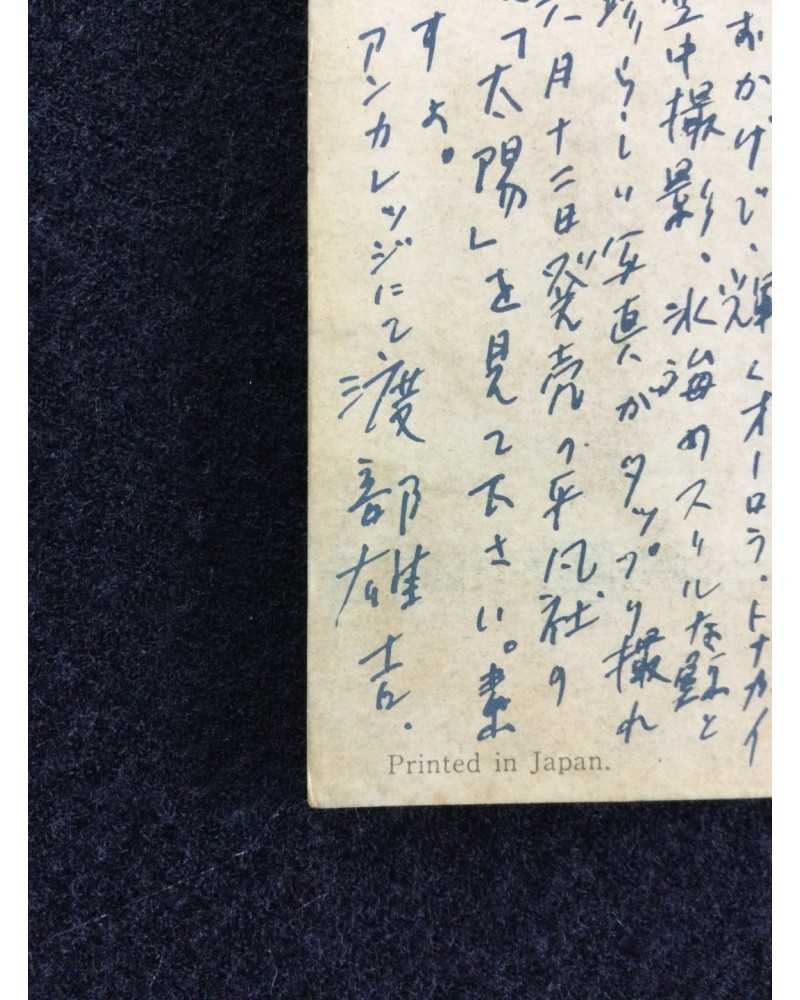 おかげで、光輝くオーロラ・トナカイ
空中撮影、氷海のスリルな と
珍らしい写真がタップリ撮れ
六月十二日発売の平凡社の
「太陽」を見て下さい。素
すよ。
アンカレッジにて 渡部雄吉.
Printed in Japan.